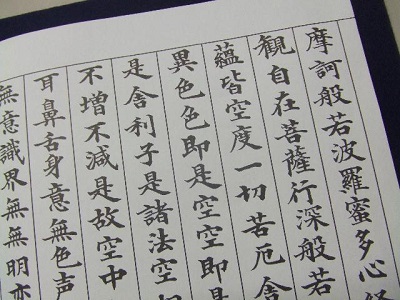 摩訶般若波羅蜜多心
観自在菩薩行深般若
蘊皆空度一切苦厄舎
異色色即是空空即是
是舎利子是諸法空
不増不減是故空中
耳鼻舌身意無色声
無意識界無無明亦